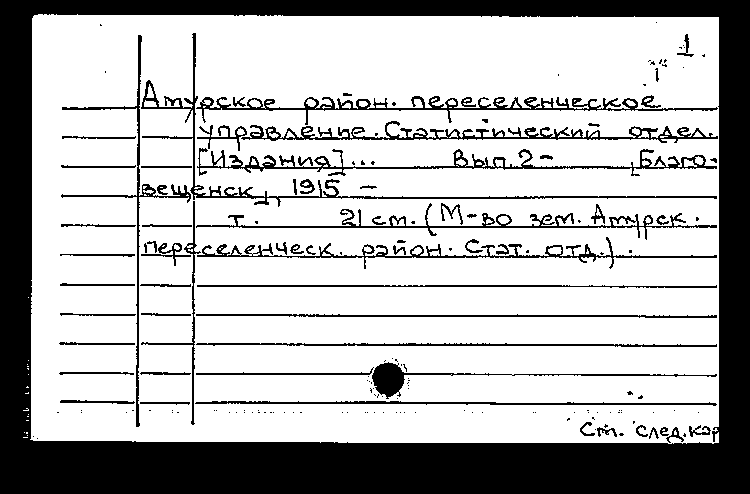 1.
Амурское район. переселенческое
управление. Статистический отдел.
[Издания]... Вып. 2 - [Благо-
вещенск], 1915 -
т. 21 см. (М-во зем. Амурск.
переселенческ. район. Стат. отд.).
См. след. кар